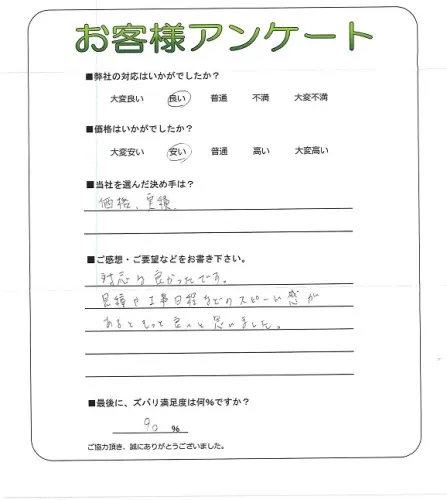 お客様アンケート
■弊社の対応はいかがでしたか?
大変良い 良い 普通 不満 大変不満
■価格はいかがでしたか?
大変安い 安い 普通 高い 大変高い
■当社を選んだ決め手は?
価格、実績
■ご感想・ご要望などをお書き下さい。
対応は良かったです。
見積や工事日程などのスピード感が
あるともっと良いと思いました。
■最後に、ズバリ満足度は何%ですか?
90 %
ご協力頂き、誠にありがとうございました。